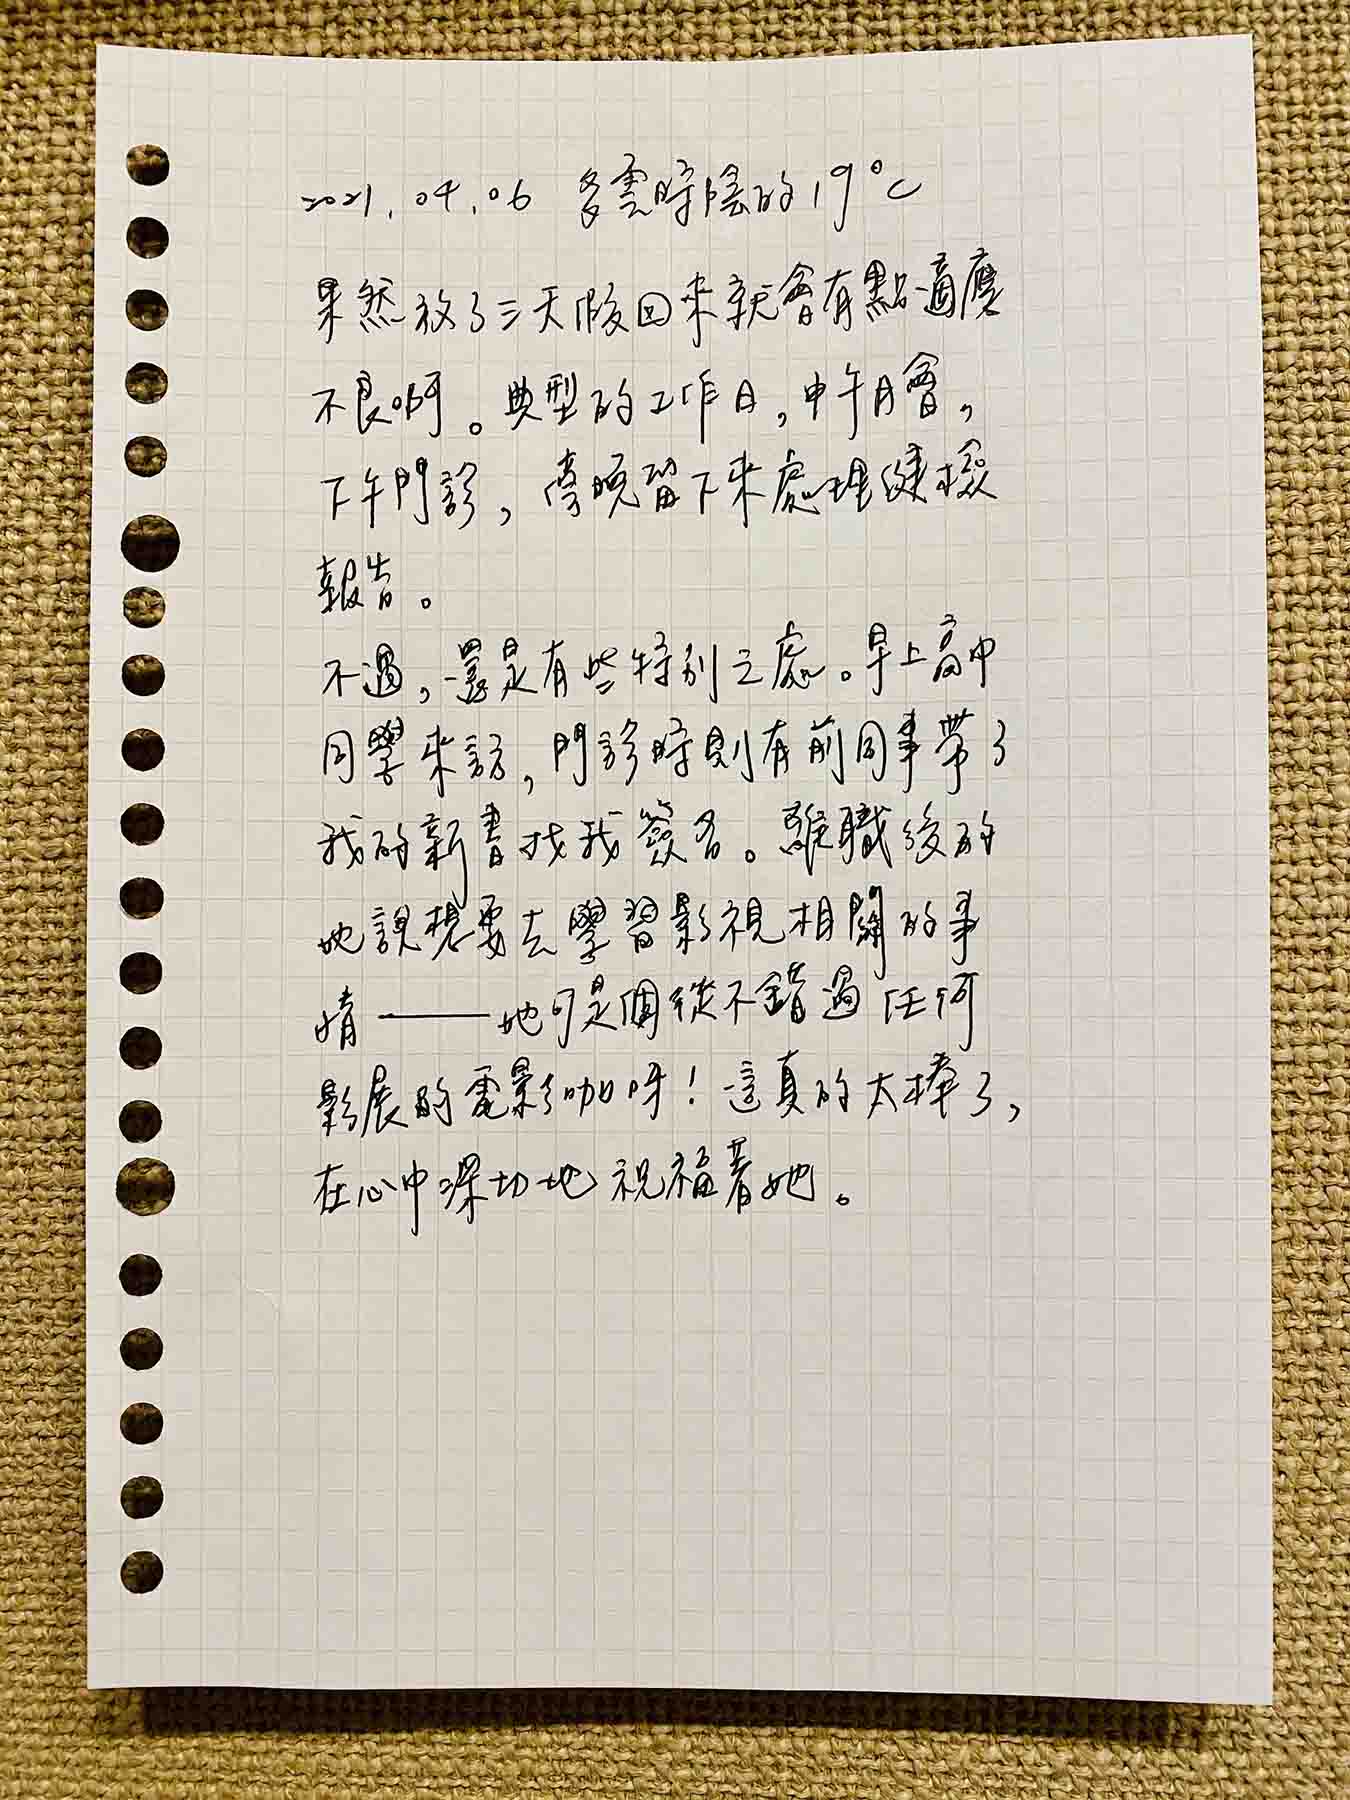 2021.04.06 多雲時陰的19°C
果然放了三天假回來就會有點適應
不良啊。典型的工作日,中午月會,
下午門診,傍晚留下來處理健檢
報告。
不過,還是有些特別之處。早上高中
同學來訪,門診時則有前同事帶了
我的新書找我簽名。離職後的
她說想要去學習影視相關的事
情——她可是個從不錯過任何
影展的電影咖呀!這真的太棒了,
在心中深切地祝福著她。